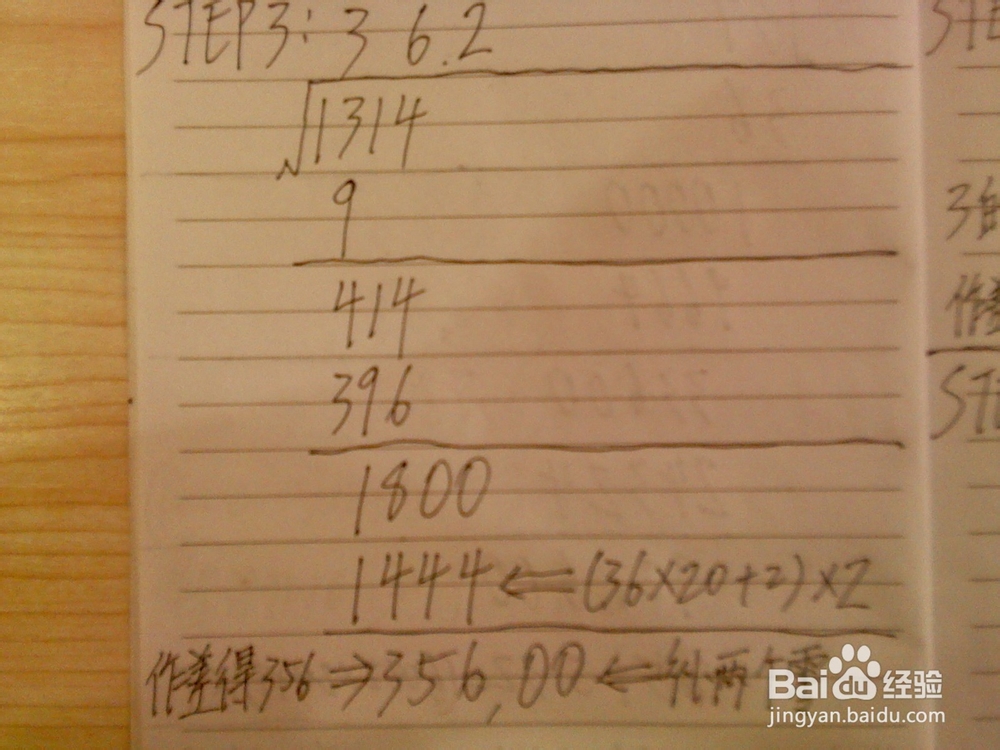 STEP3: 3 6.2
√1314
9
414
396
1800
1444 ⇐ (36×20+2)×2
作差得356 ⇒ 356,00 ⇐ 补两个零
STE
3
作差
STE
Baidu经验
jingyan.baidu.com